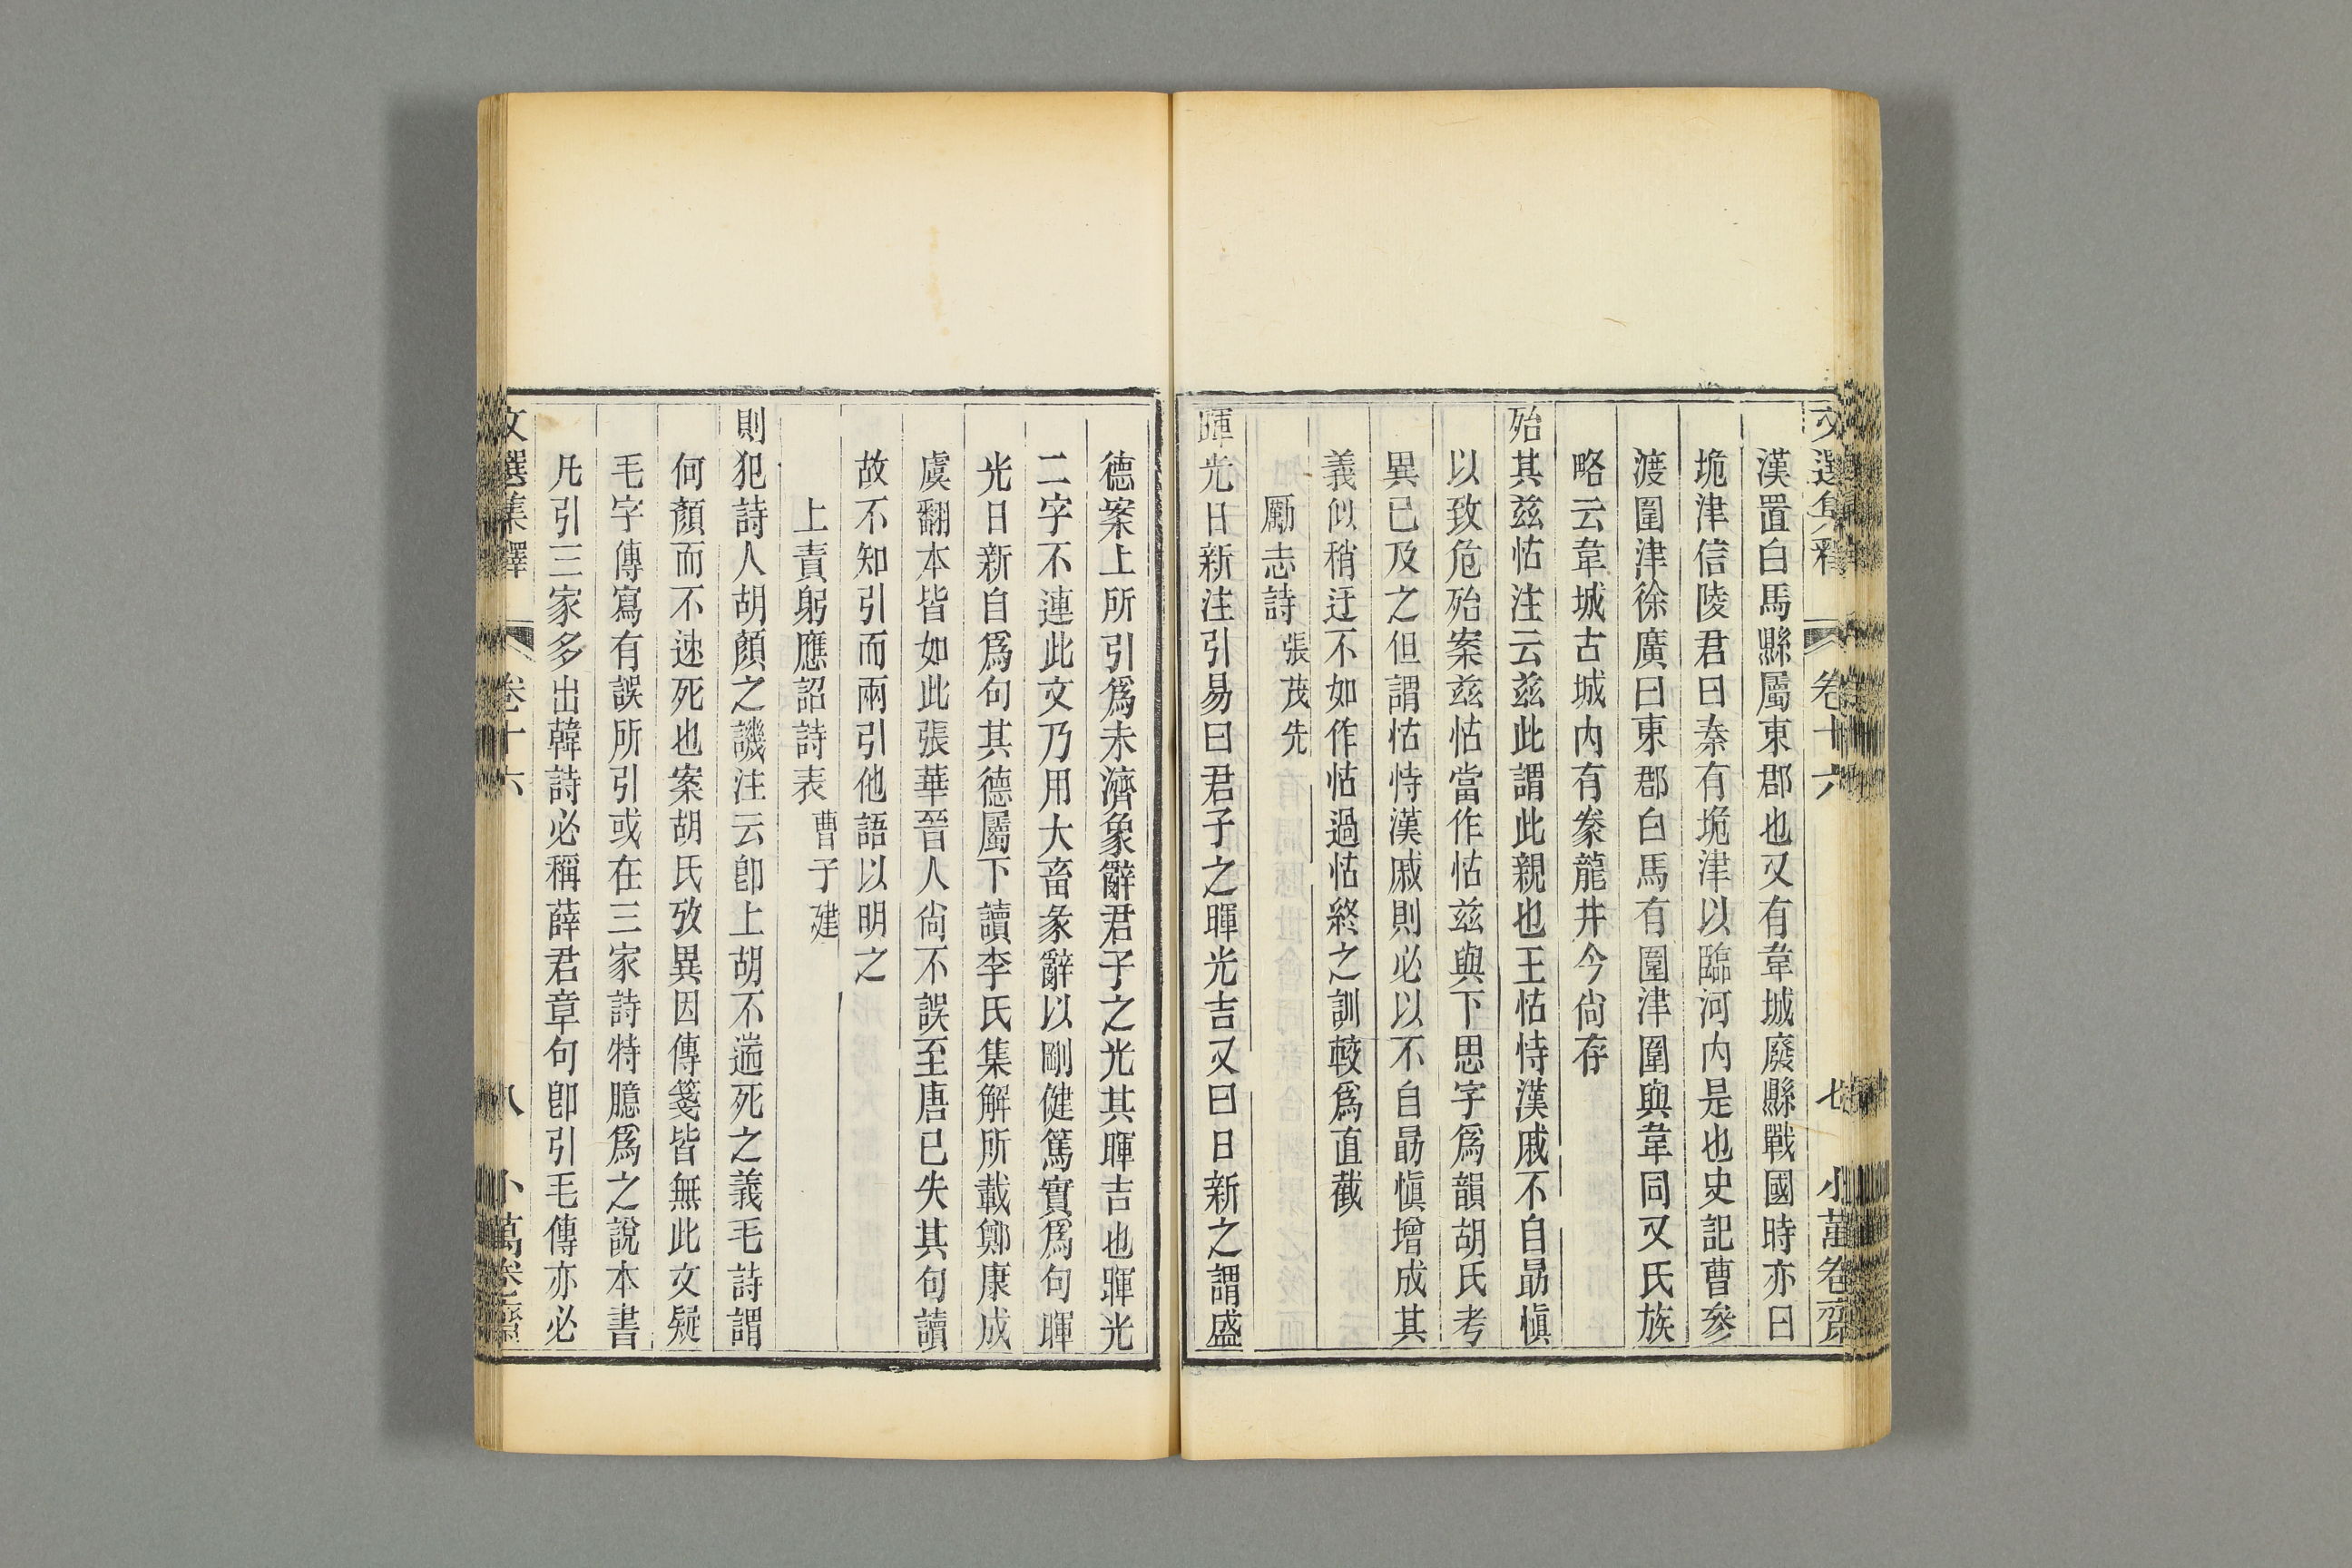 文選集釋 卷十六 七 小萬卷齋
漢置白馬縣屬東郡也又有韋城廢縣戰國時亦曰
垝津信陵君曰秦有垝津以臨河內是也史記曹參
渡圍津徐廣曰東郡白馬有圍津圍與韋同又氏族
略云韋城古城內有豢龍井今尚存
殆其兹怙注云兹此謂此親也王怙恃漢戚不自勗愼
以致危殆案兹怙當作怙兹與下思字爲韻胡氏考
異已及之但謂怙恃漢戚則必以不自勗愼增成其
義似稍迂不如作怙過怙終之訓較爲直截
勵志詩張茂先
暉光日新注引易曰君子之暉光吉又曰日新之謂盛
德案上所引爲未濟象辭君子之光其暉吉也暉光
二字不連此文乃用大畜彖辭以剛健篤實爲句暉
光日新自爲句其德屬下讀李氏集解所載鄭康成
虞翻本皆如此張華晉人尚不誤至唐已失其句讀
故不知引而兩引他語以明之
上責躬應詔詩表曹子建
則犯詩人胡顏之譏注云卽上胡不遄死之義毛詩謂
何顏而不速死也案胡氏攷異因傳箋皆無此文疑
毛字傳寫有誤所引或在三家詩特臆爲之說本書
凡引三家多出韓詩必稱薛君章句卽引毛傳亦必
文選集釋 卷十六 八 小萬卷齋